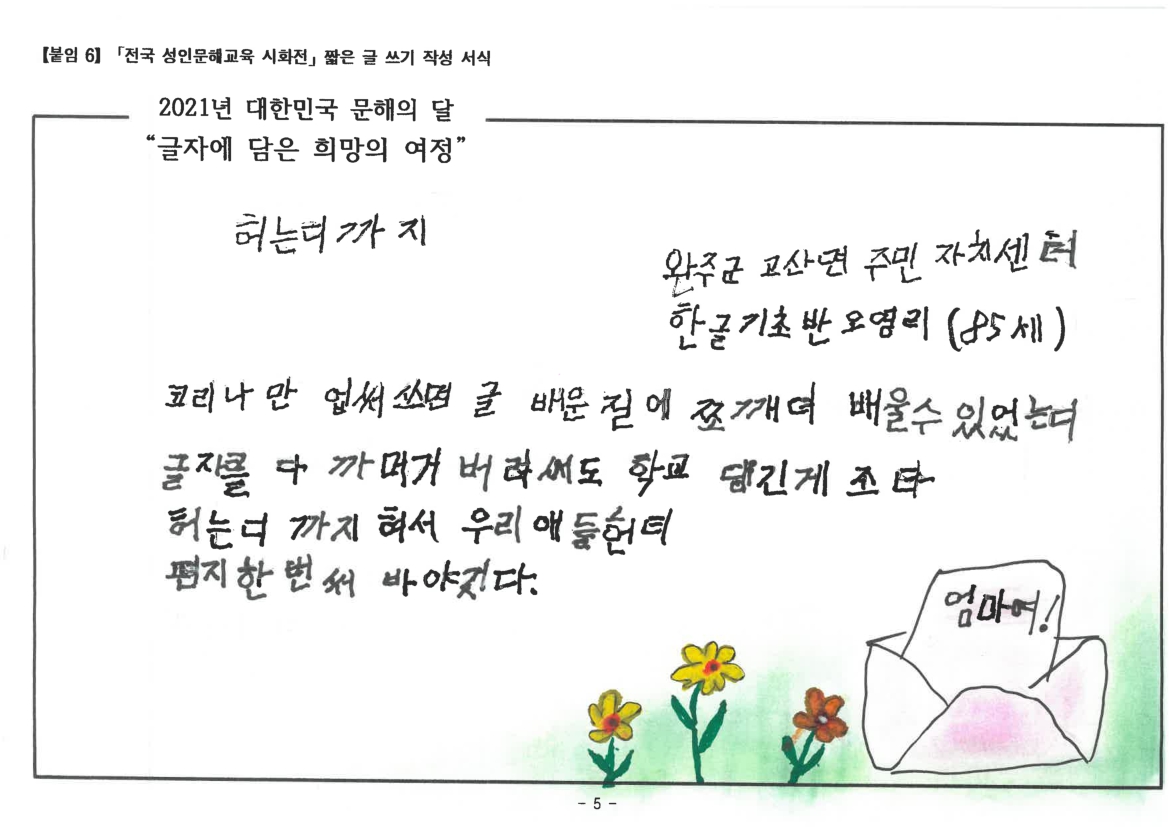 【붙임 6】 「전국 성인문해교육 시화전」 짧은 글 쓰기 작성 서식
2021년 대한민국 문해의 달
“글자에 담은 희망의 여정”
허는디 까지
완주군 고산면 주민 자치센터
한글기초반 오영리 (85세)
코리나만 업써쓰면 글 배운질에 쪼깨며 배울수 있었는디
글자를 다 까머거 버려써도 학교 댕긴게 조타
허는디 까지 혀서 우리애들헌티
편지한번 써 바야겄다.
엄마여!
- 5 -